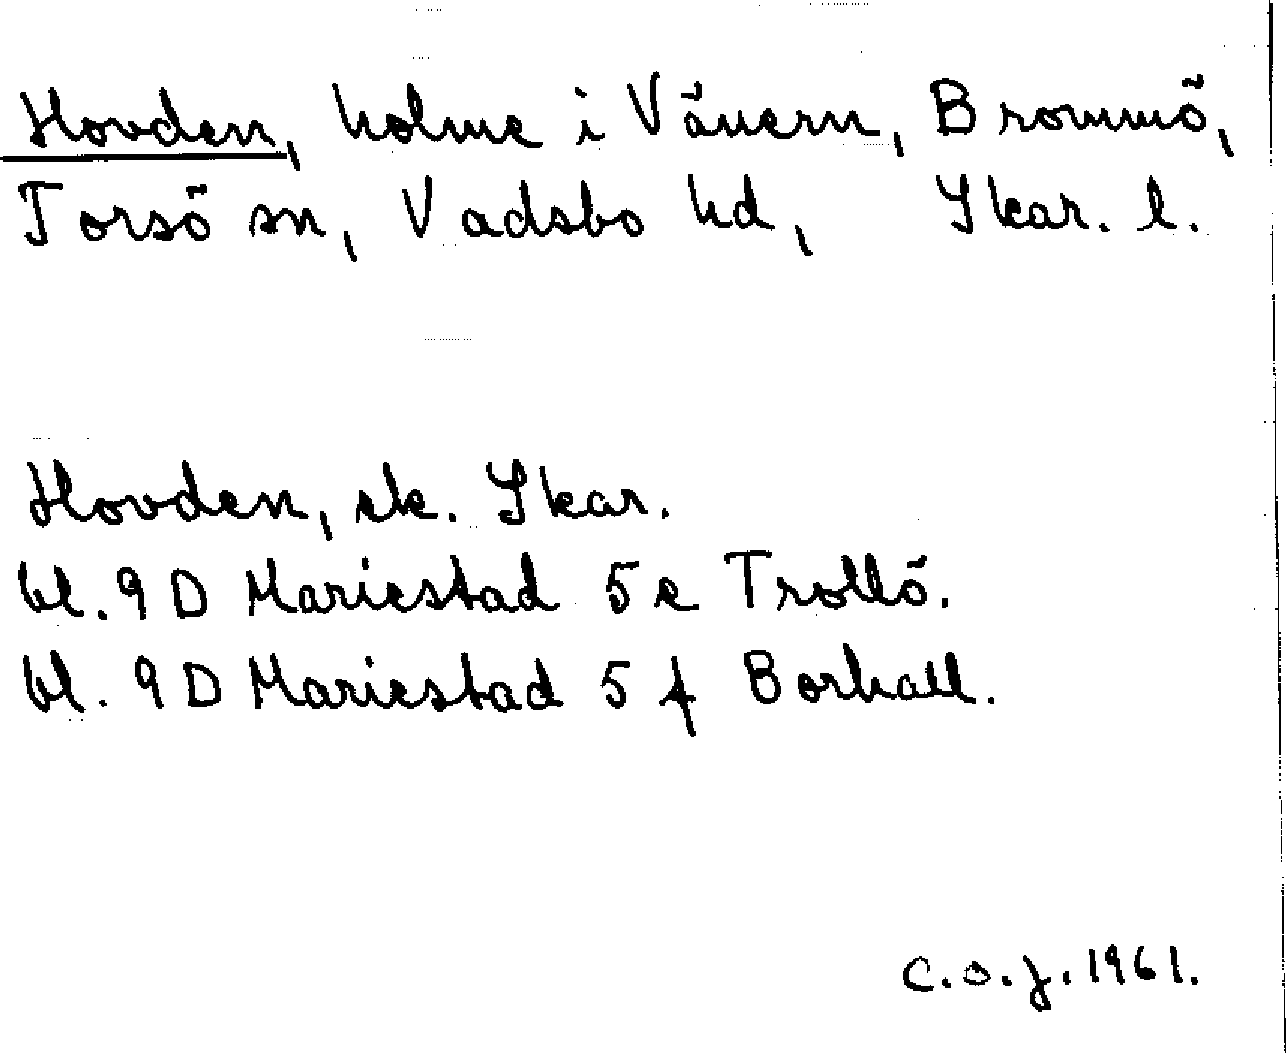 Hovden, holme i Vänern, Brommö,
Torsö sn, Vadsbo hd, Skar. l.
Hovden, sk. Skar.
bl. 9 D Mariestad 5 e Trollö.
bl. 9 D Mariestad 5 f Borhall.
C.O.J. 1961.